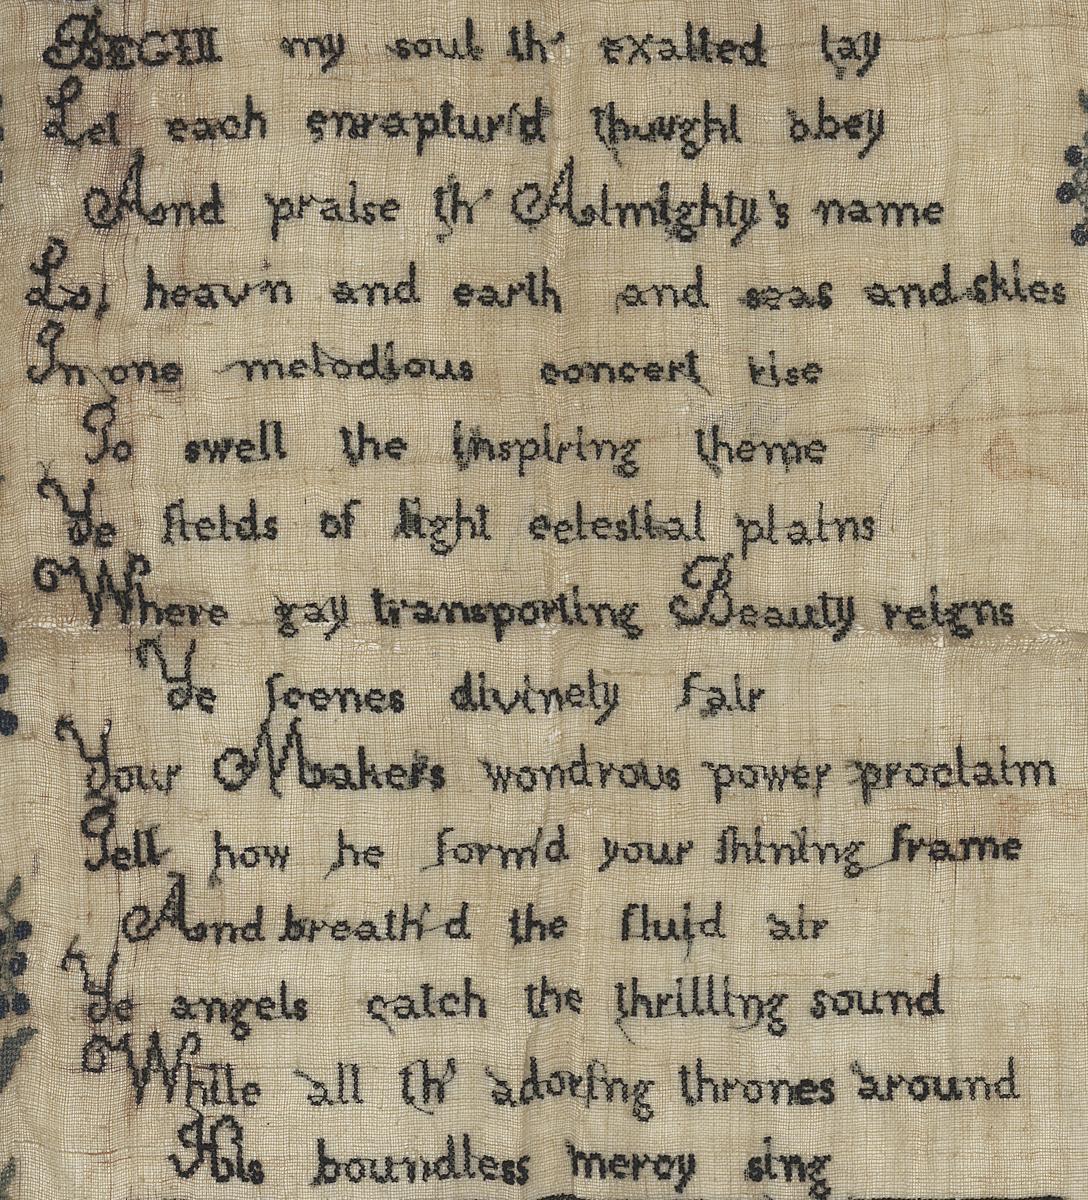 BEGIN my soul th' exalted lay
Let each enraptur'd thought obey
And praise th' Almighty's name
Lo, heavn and earth and seas and skies
In one melodious concert rise
To swell the inspiring theme
Ye fields of light celestial plains
Where gay transporting Beauty reigns
Ye scenes divinely fair
Your Makers wondrous power proclaim
Tell how he form'd your shining frame
And breath'd the fluid air
Ye angels catch the thrilling sound
While all th' adoring thrones around
His boundless mercy sing